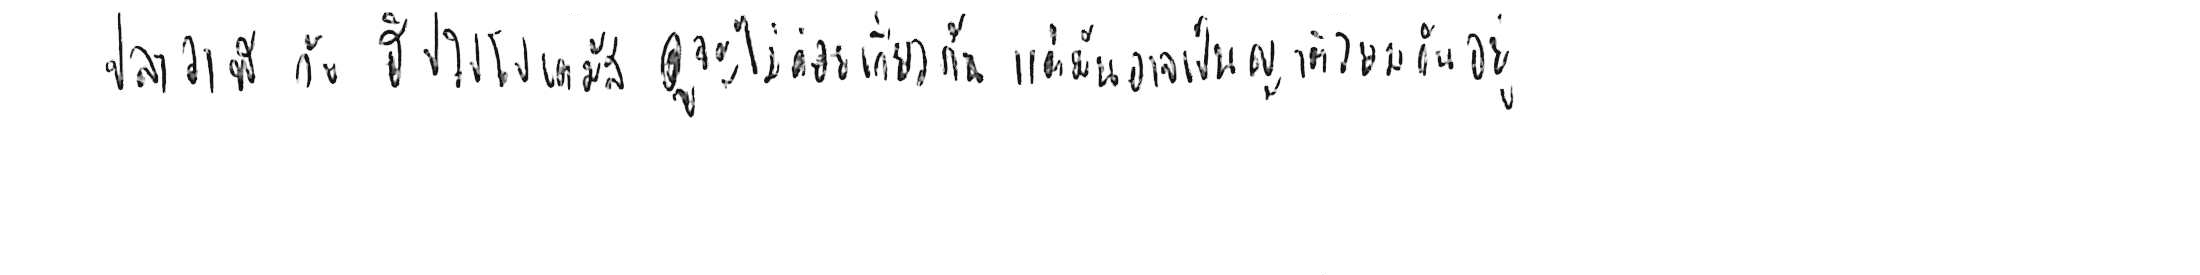 ปลาวาฬ กับ ฮิปโปโปเตมัส ดูจะไม่ค่อยเกี่ยวกัน แต่มันอาจเป็นญาติร่วมกันอยู่